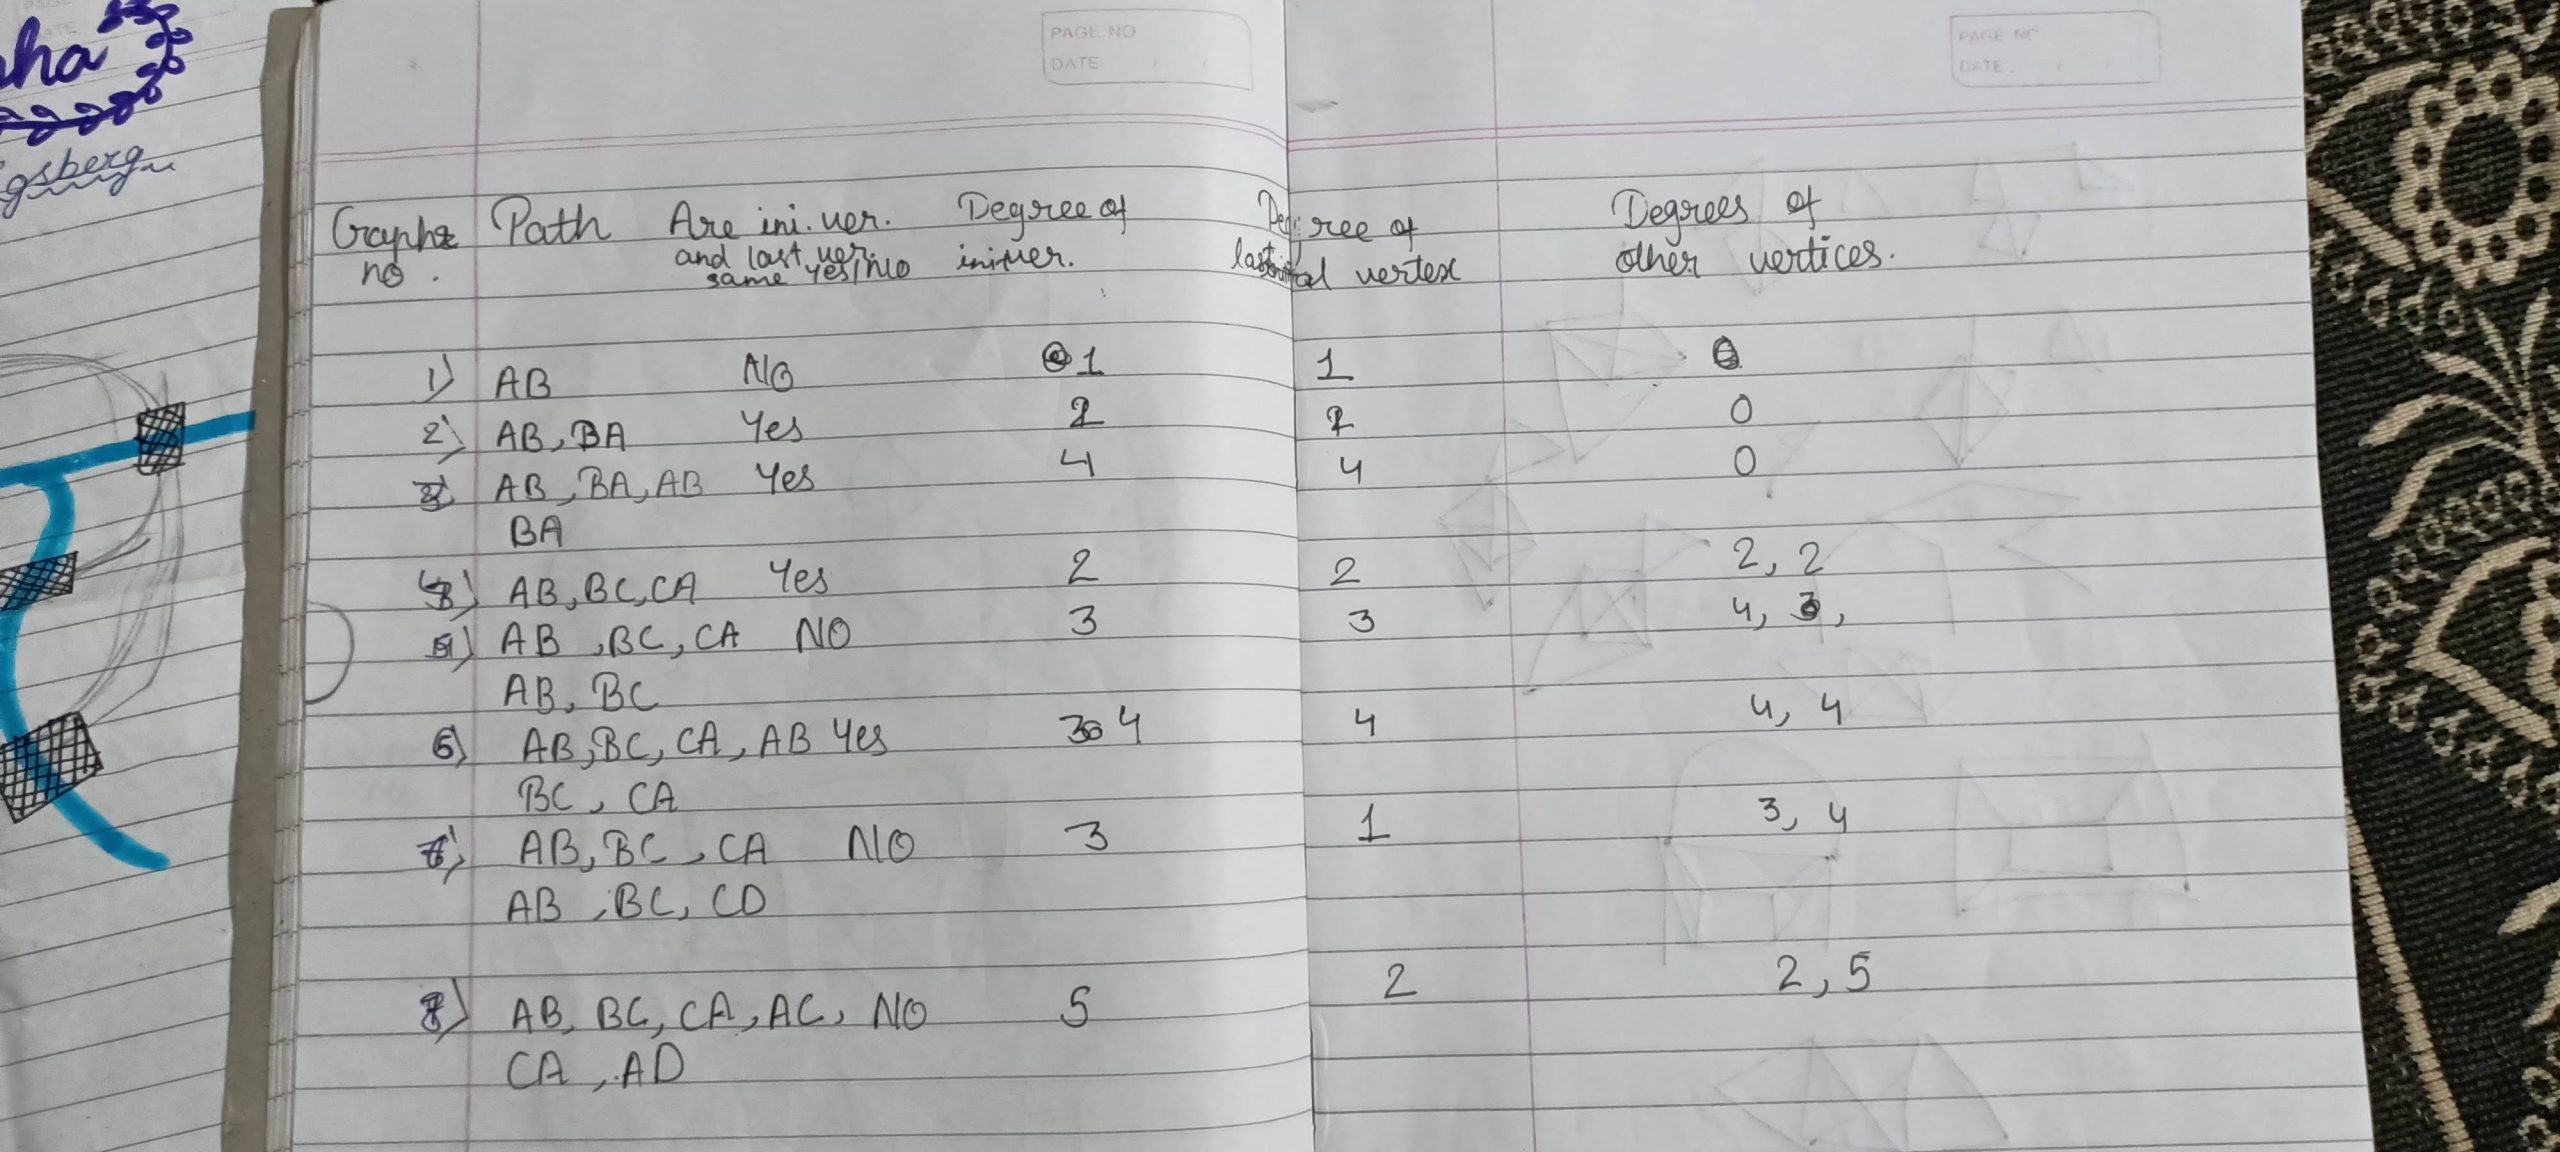 PAGE NO
DATE
PAGE NO
DATE
Graphs no. Path Are ini. ver. and last ver. same Yes/No Degree of ini. ver. Degree of last vertex Degrees of other vertices.
1) AB NO 1 1
2) AB, BA Yes 2 2 0
AB, BA, AB Yes 4 4 0
BA
4) AB, BC, CA Yes 2 2 2, 2
5) AB, BC, CA NO 3 3 4,
AB, BC
6) AB, BC, CA, AB Yes 4 4 4, 4
BC, CA
7) AB, BC, CA NO 3 1 3, 4
AB, BC, CD
8) AB, BC, CA, AC, NO 5 2 2, 5
CA, AD